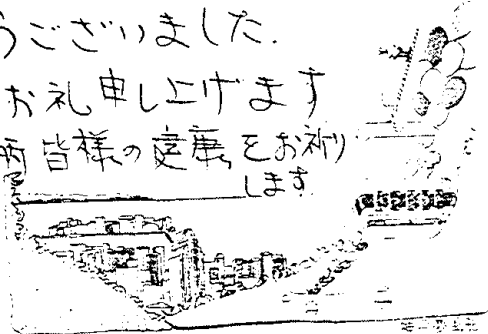 うございました.
お礼申し上げます
皆様の健康をお祈り
します